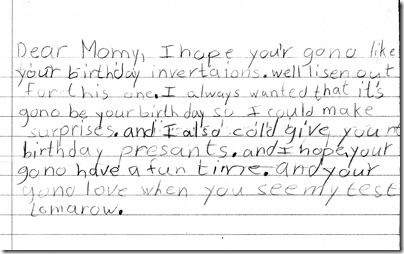 Dear Momy, I hope you'r gona like
your birthday invertaions. well lisen out
for this one. I always wanted that it's
gono be your birthday so I could make
surprises. and I also cold give your
birthday presants. and I hope your
gono have a fun time. and your
gono love when you see my test
tomarow.